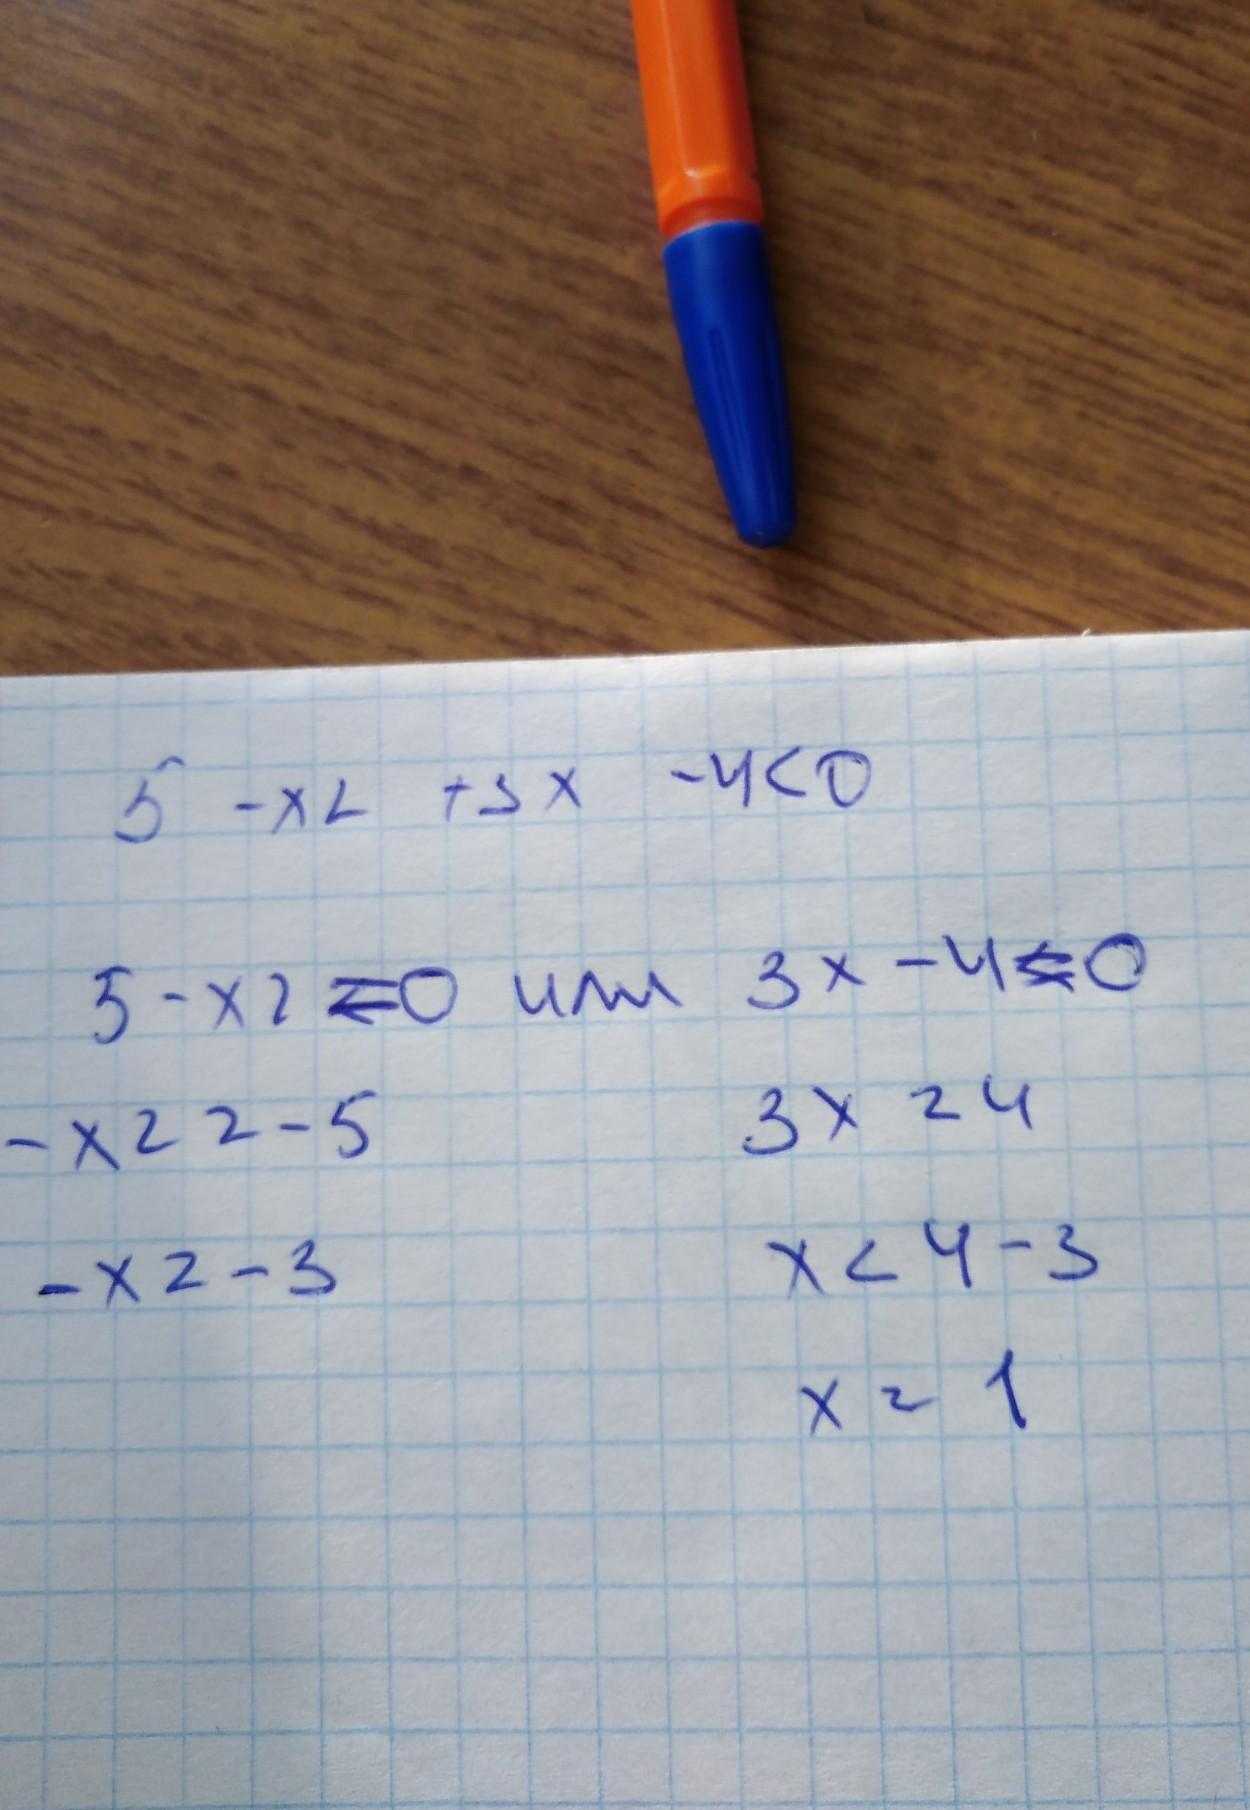 5 -x2 +3x -4<0
5-x2 =0 или 3x-4≤0
-x2 = -5
3x = 4
-x = -3
x < 4-3
x = 1